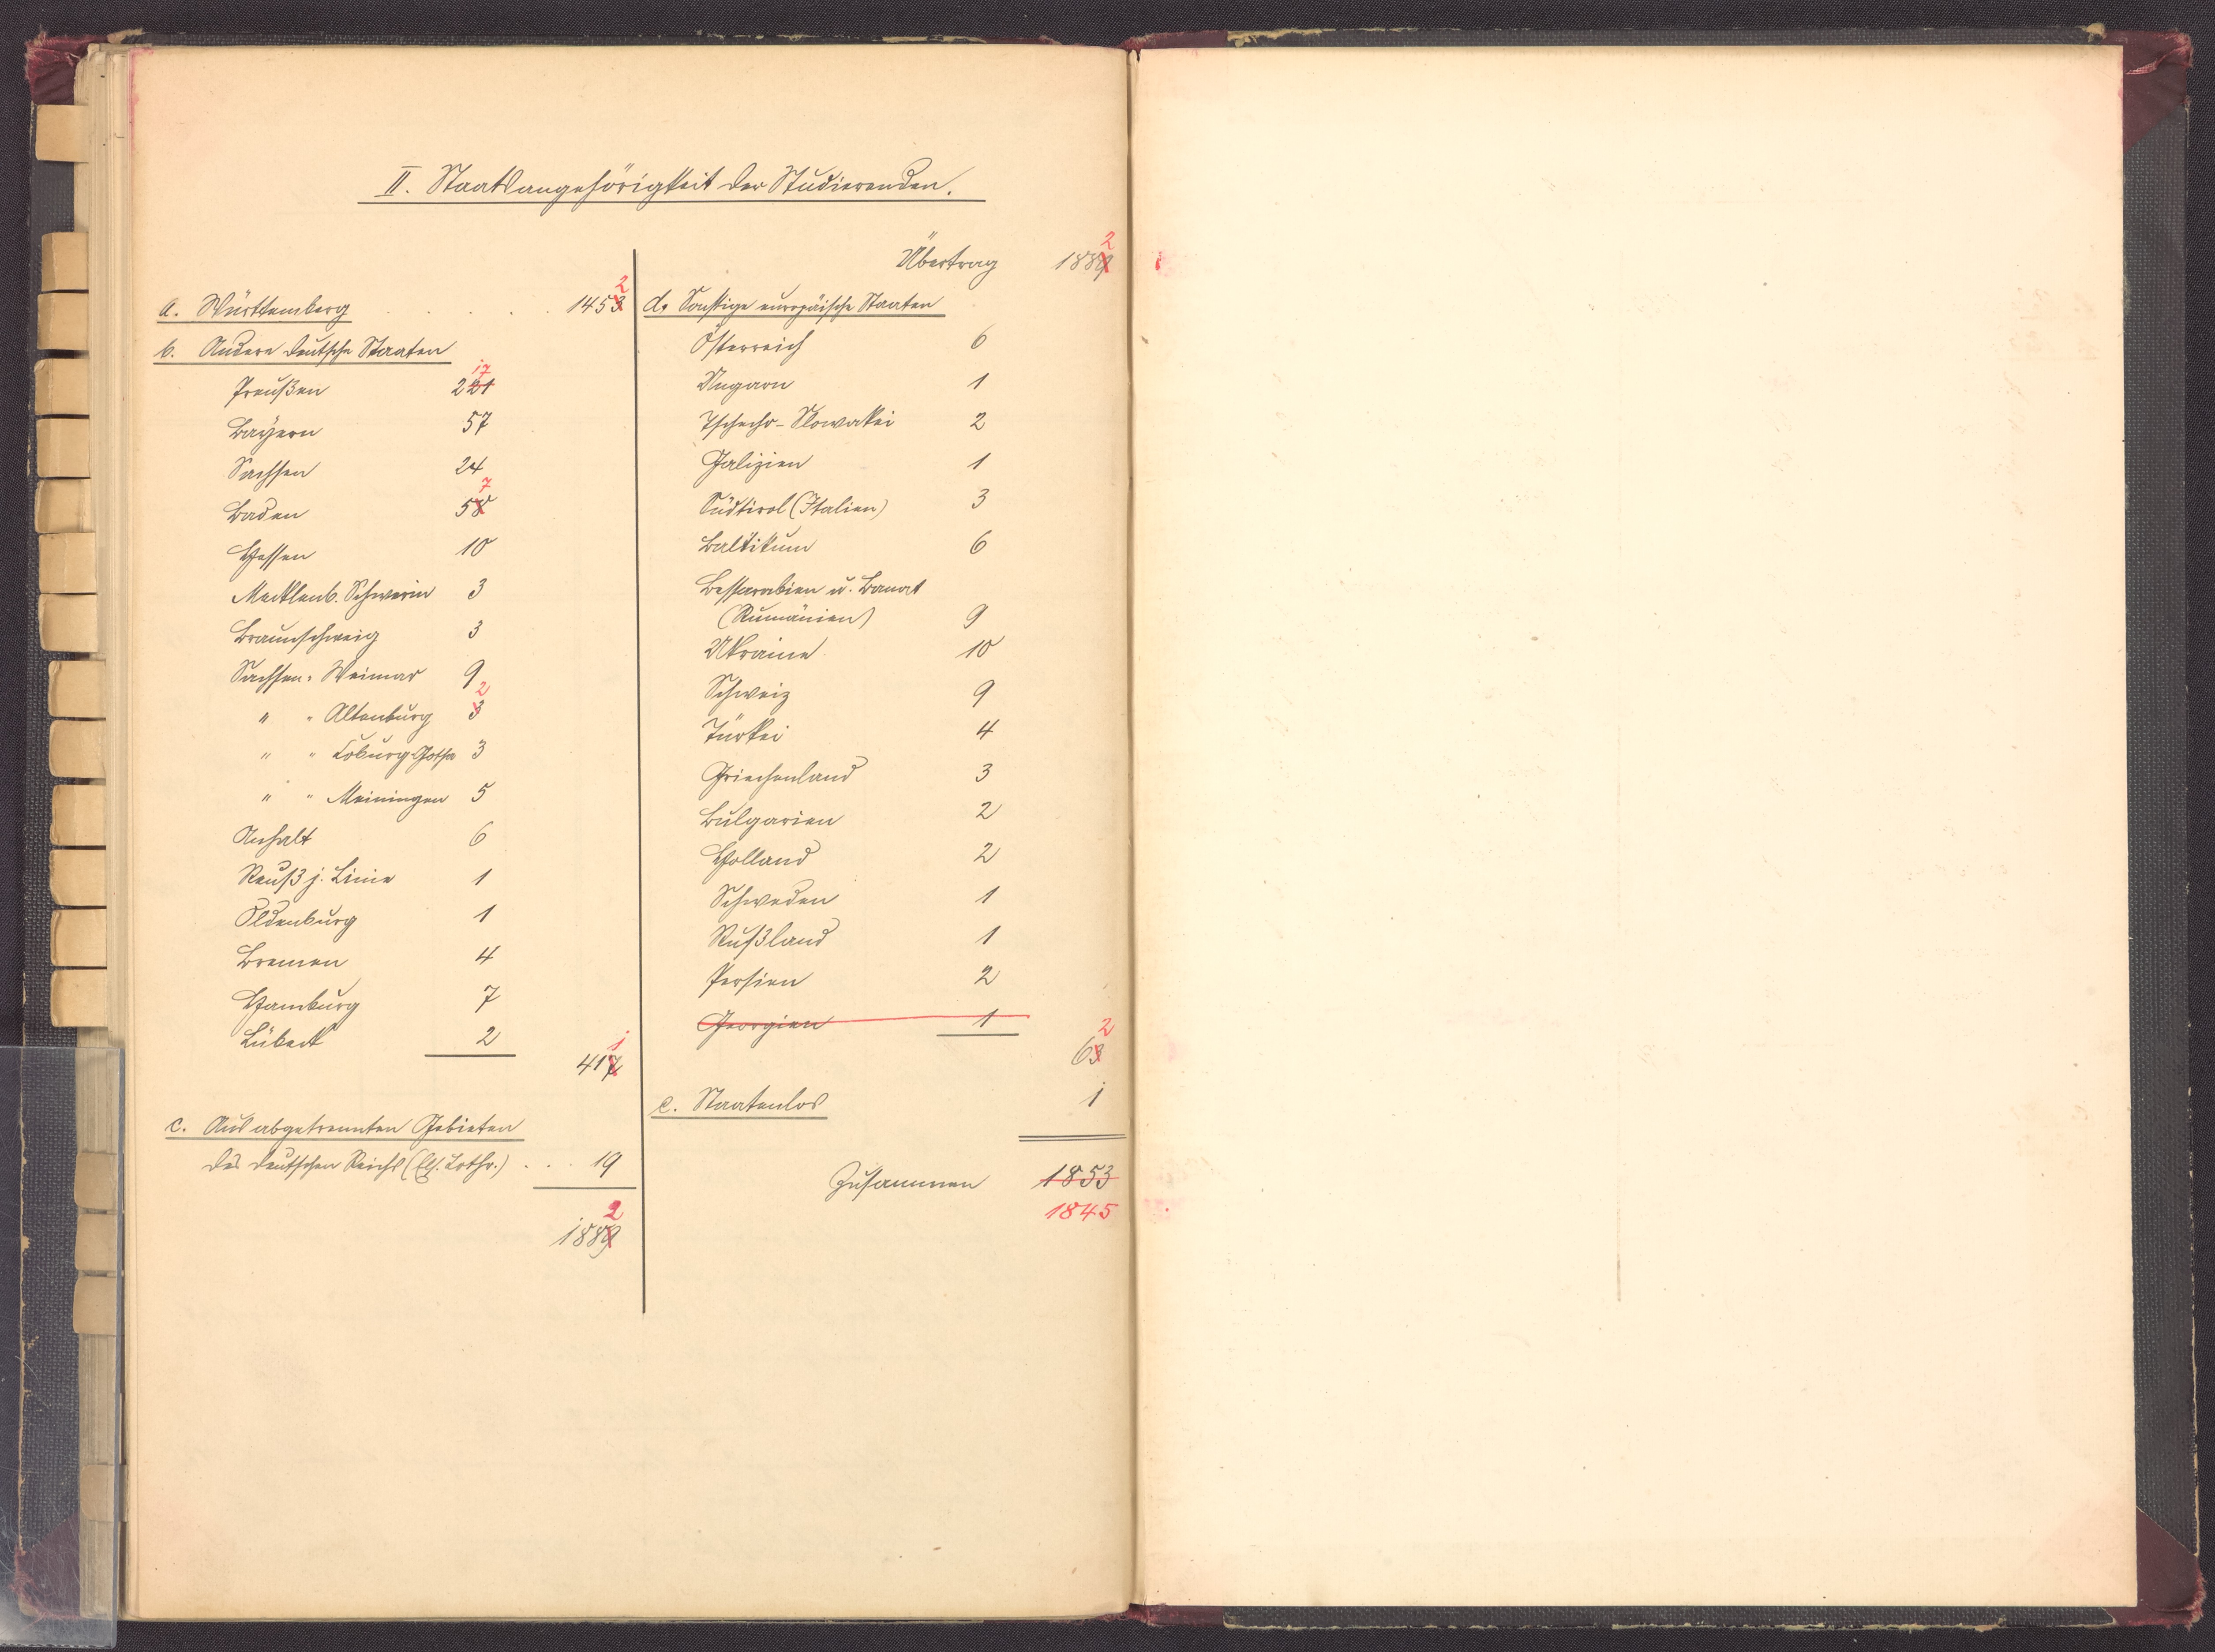 II. Staatsangehörigkeit der Studierenden.
a. Württemberg . . . . . 1453 2
b. Andere deutsche Staaten
Preußen 221 17
Bayern 57
Sachsen 24
Baden 58 7
Hessen 10
Mecklenb. Schwerin 3
Braunschweig 3
Sachsen-Weimar 9
" " Altenburg 3 2
" " Coburg-Gotha 3
" " Meiningen 5
Anhalt 6
Reuß j. Linie 1
Oldenburg 1
Bremen 4
Hamburg 7
Lübeck 2
417 1
c. Aus abgetrennten Gebieten
des deutschen Reichs (Els. Lothr.) . . . 19
1889 2
Übertrag 1889 2
d. Sonstige europäische Staaten
Österreich 6
Ungarn 1
Tschecho-Slowakei 2
Galizien 1
Südtirol (Italien) 3
Baltikum 6
Bessarabien u. Banat
(Rumänien) 9
Ukraine 10
Schweiz 9
Türkei 4
Griechenland 3
Bulgarien 2
Holland 2
Schweden 1
Rußland 1
Persien 2
Georgien 1
63 2
e. Staatenlos 1
Zusammen 1853
1845